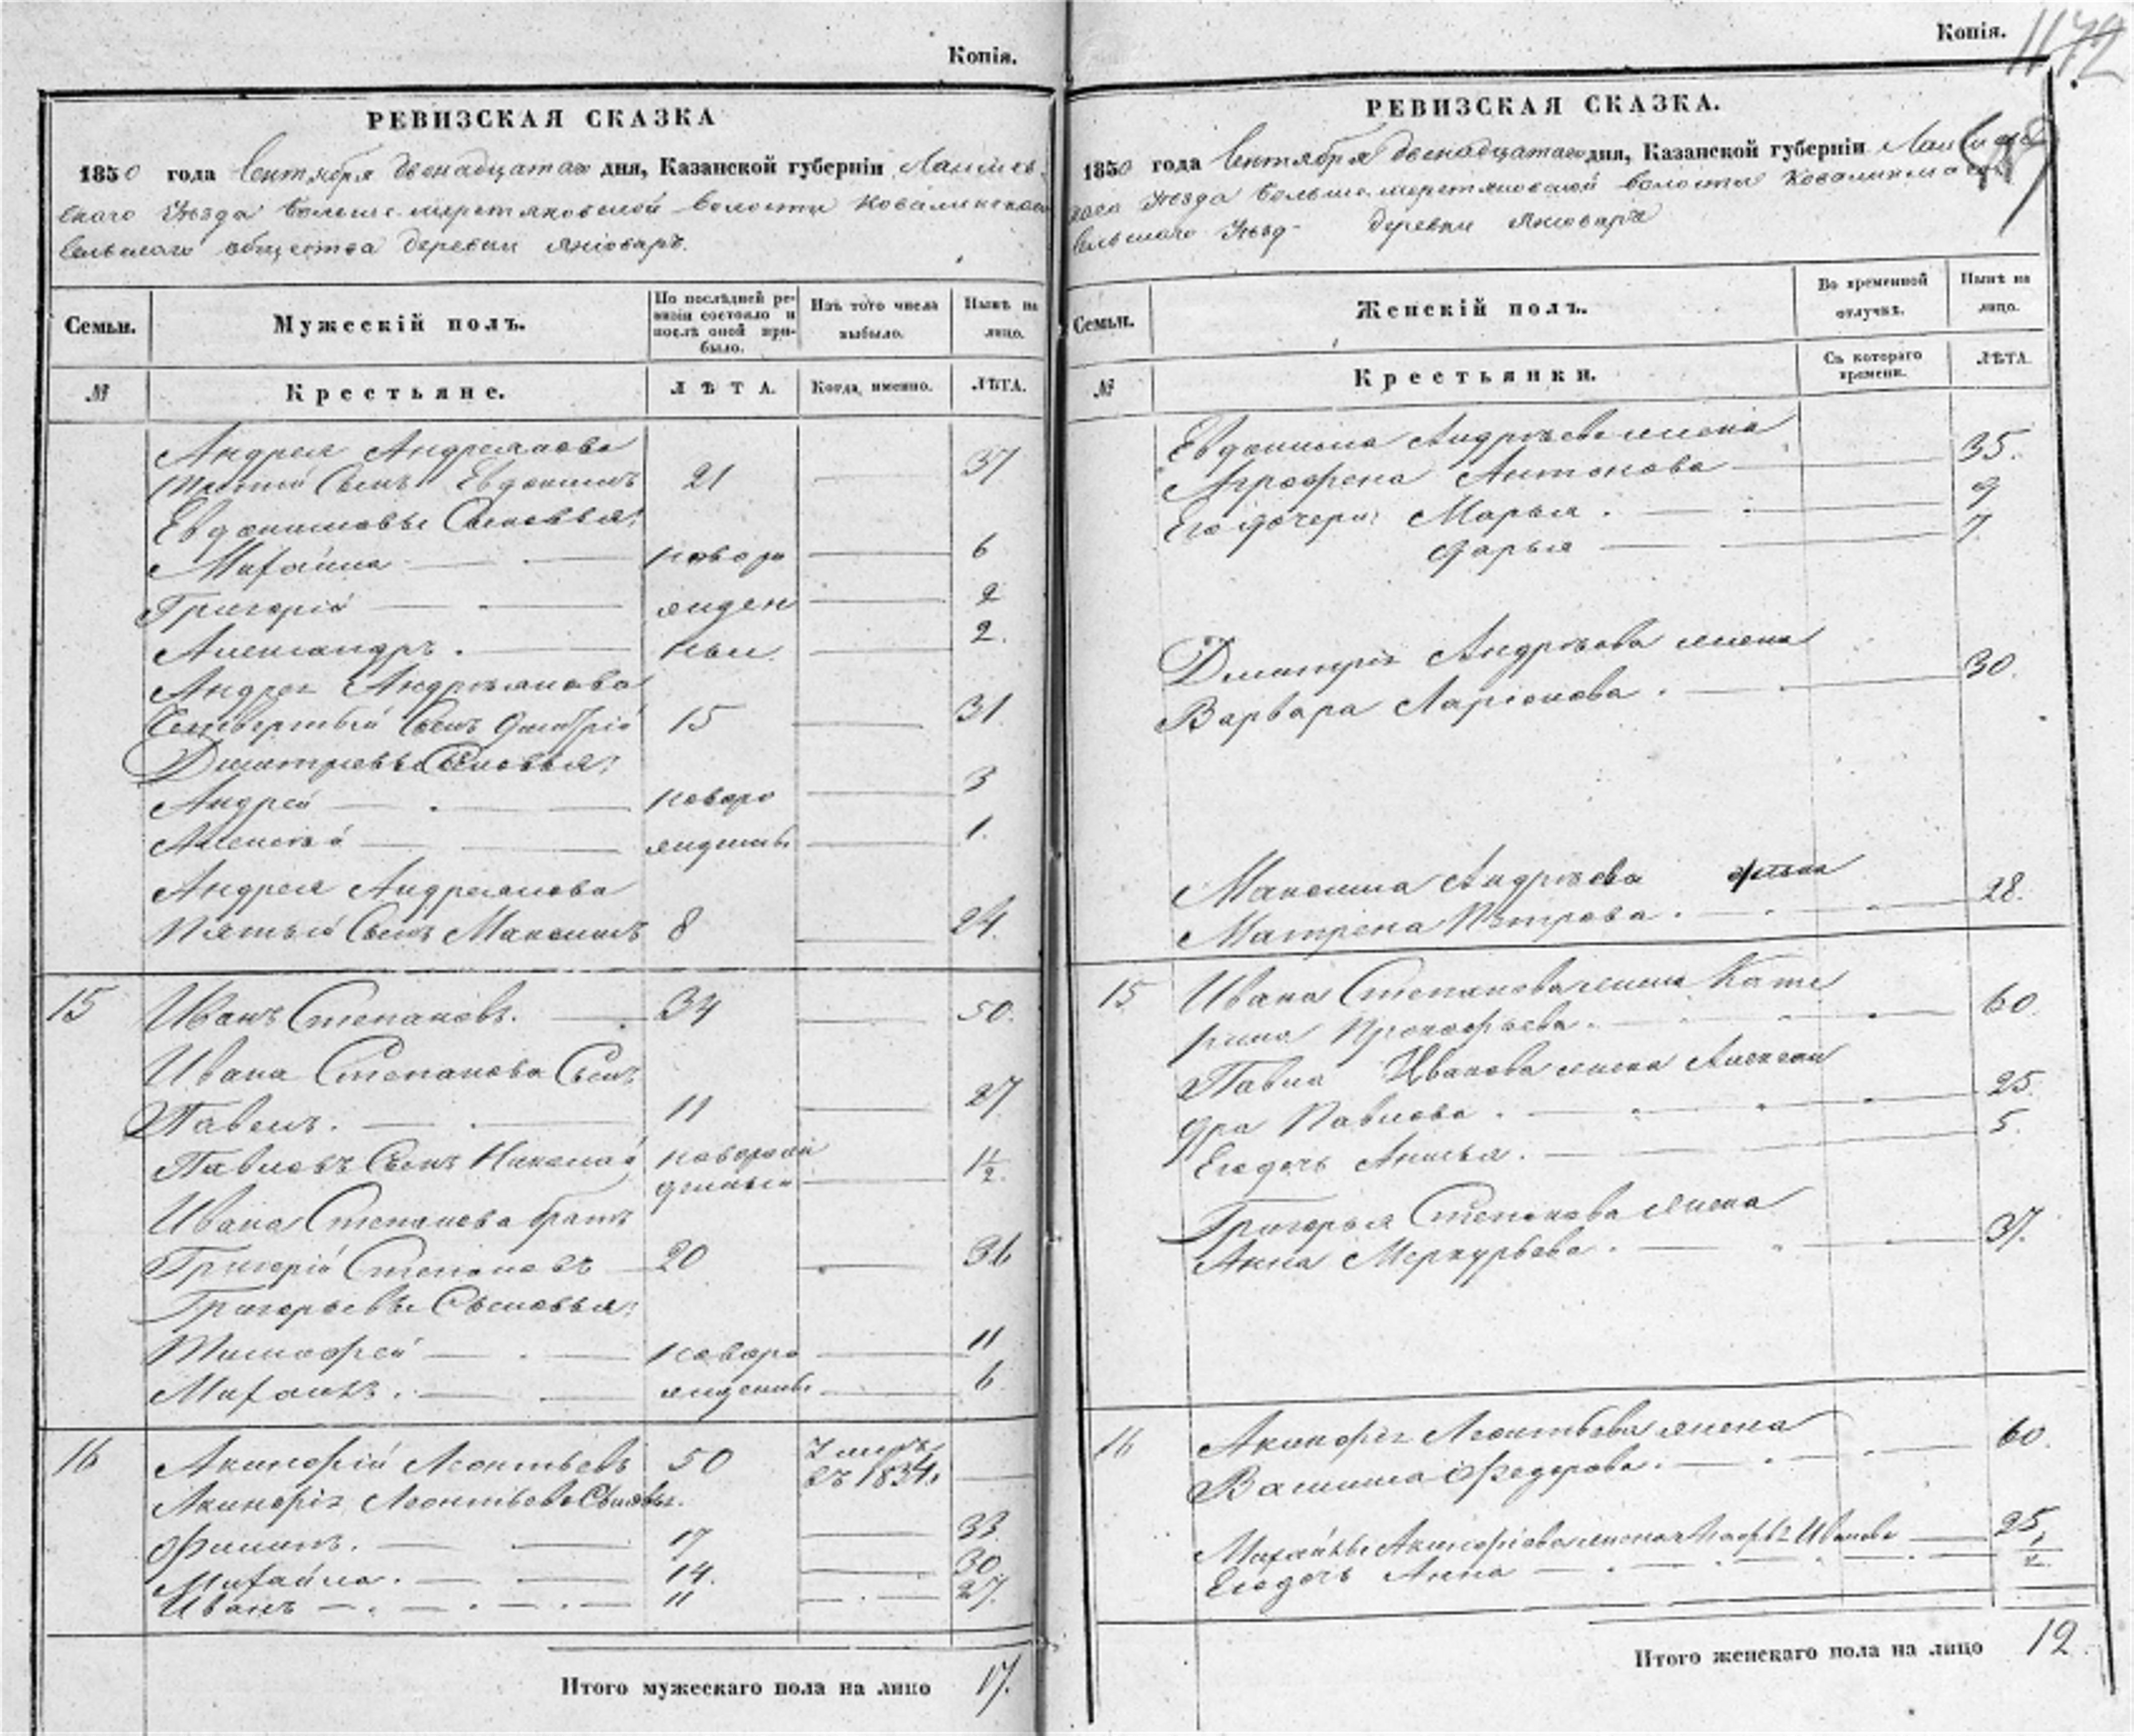 Копія.
РЕВИЗСКАЯ СКАЗКА
1850 года Сентября двенадцатаго дня, Казанской губерніи Лаишев-
скаго Уезда волости
общества деревни Янсовар.
Семьи. Мужескій полъ. По послѣдней ревизіи состояло и послѣ оной прибыло. Изъ того числа выбыло. Нынѣ на лицо.
№ Крестьяне. ЛѢТА. Когда, именно. ЛѢТА.
Андрея Андреянова
третій Сынъ Евдокимъ 21 37
Евдокимовы Сыновья:
Михайла новоро 6
Григорій жден 2
Александръ ные 2.
Андрея Андреянова
Четвертый Сынъ Дмитрій 15 31.
Дмитріевы Сыновья:
Андрей новоро 3
Алексѣй жденые 1.
Андрея Андреянова
Пятый Сынъ Максимъ 8 24.
15 Иванъ Степановъ. 34 50.
Ивана Степанова Сынъ
Павелъ. 11 27
Павловъ Сынъ Николай новорож
денный 1 1/2.
Ивана Степанова братъ
Григорій Степановъ 20 36
Григорьевы Сыновья:
Тимофей новоро 11
Михаилъ. жденые 6
16 Акинфій Леонтьевъ 50 Умеръ
въ 1834.
Акинфія Леонтьева Сыновья.
Филипъ. 17 33.
Михайла. 14. 30
Иванъ 11 27.
Итого мужескаго пола на лицо 17.
Копія. 1172
РЕВИЗСКАЯ СКАЗКА.
1850 года Сентября двенадцатаго дня, Казанской губерніи
Уезда волости
деревни
Семьи. Женскій полъ. Во временной отлучкѣ. Нынѣ на лицо.
№ Крестьянки. Съ котораго времени. ЛѢТА.
Евдокима Андрѣева жена
Агрофена Антонова 35.
Его дочери: Марья. 9
Дарья 7.
Дмитрія Андрѣева жена
Варвара Ларіонова. 30.
Максима Андрѣева жена
Матрена Петрова. 28.
15 Ивана Степанова жена Кате
рина Прокофьева. 60.
Павла Иванова жена Александ
дра Павлова. 25.
Его дочь Анисья. 5.
Григорья Степанова жена
Анна Меркурьева. 37.
16 Акинфія Леонтьева жена
Василиса Федорова. 60.
Михайлы Акинфіева жена Иванова 25,
Его дочь Анна 1/2.
Итого женскаго пола на лицо 12.